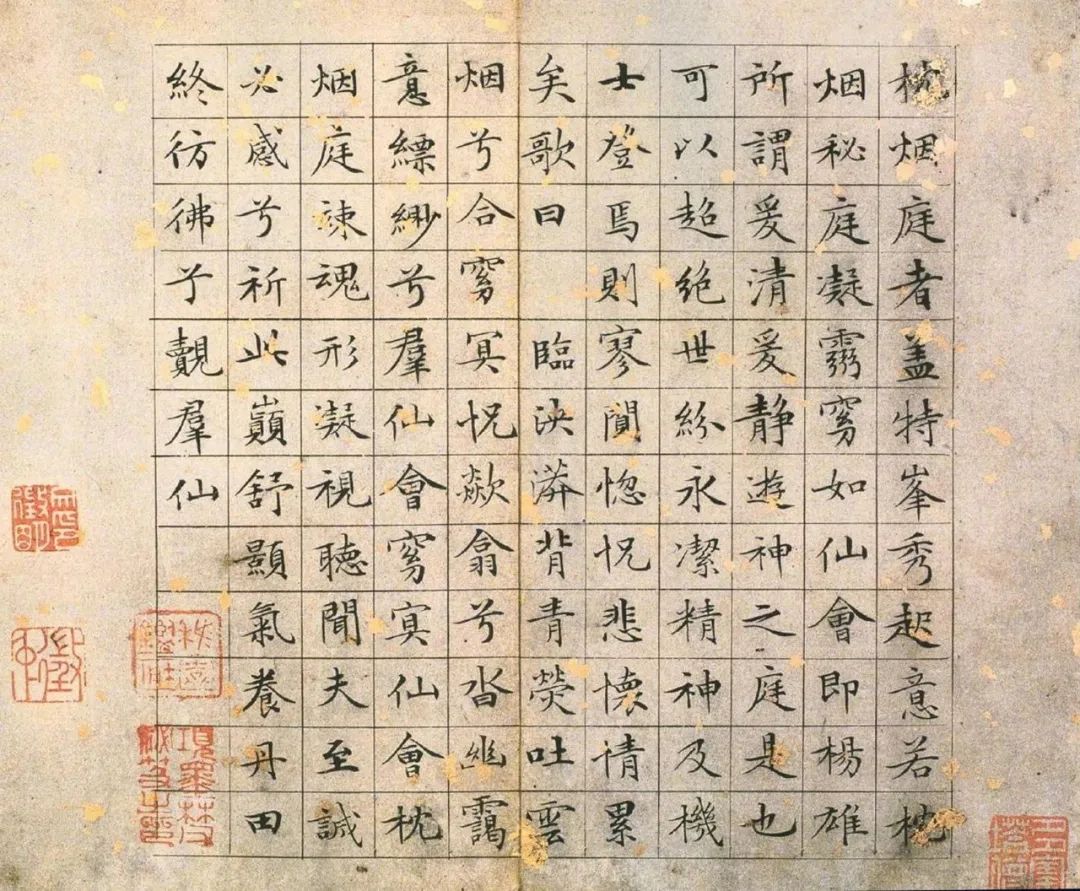 枕烟庭者盖特峯秀起意若枕
烟秘庭凝靄窅如仙會即楊雄
所謂爰清爰静遊神之庭是也
可以超絶世紛永潔精神及機
士登焉則寥閴惚怳悲懷情累
矣歌曰 臨泱漭背青熒吐雲
烟兮合窅冥怳歘翕兮沓幽靄
意縹緲兮羣仙會窅冥仙會枕
烟庭竦魂形凝視聽聞夫至誠
必感兮祈此巔舒顥氣養丹田
終彷彿兮覿羣仙